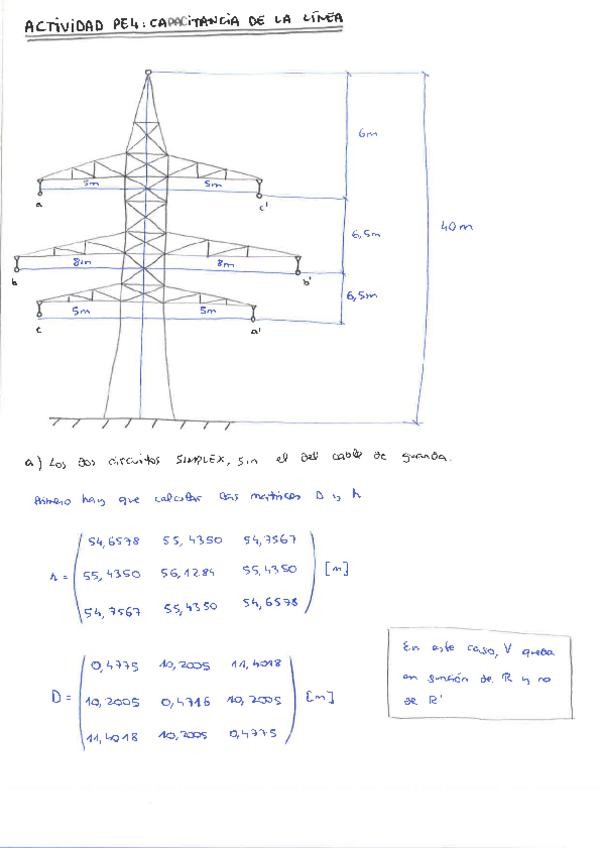 ACTIVIDAD PE4: CAPACITANCIA DE LA LÍNEA
6m
5m 5m
a c'
6,5m
40m
8m 8m
b b'
6,5m
5m 5m
c a'
a) Los dos circuitos SIMPLEX, sin el del cable de guarda.
Primero hay que calcular las matrices D y h
54,6578 55,4350 54,7567
h = 55,4350 56,1284 55,4350 [m]
54,7567 55,4350 54,6578
0,4775 10,2005 11,4018
D = 10,2005 0,4716 10,2005 [m]
11,4018 10,2005 0,4775
En este caso, V queda
en función de R y no
de R'